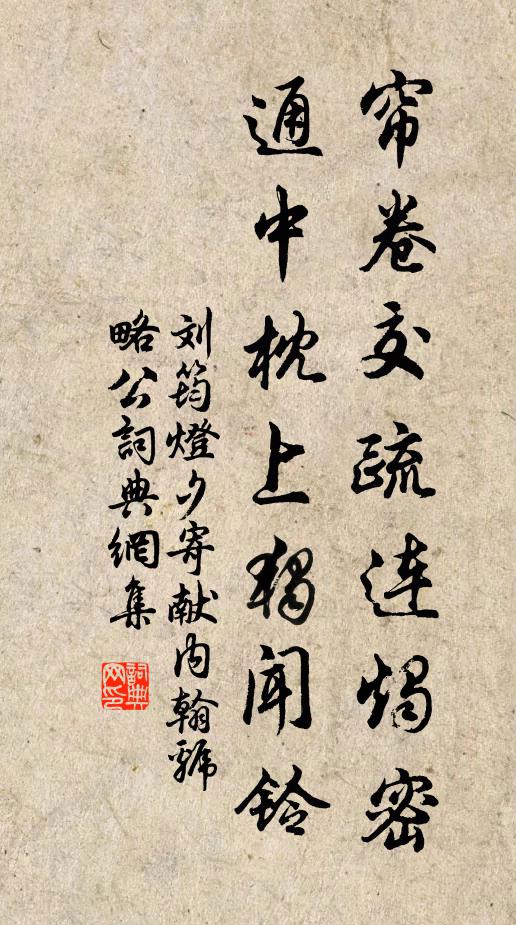 帘卷交疏连烛密
通中枕上独闻铃
刘筠燈夕寄献内翰虢
略公詞典網集
詞典网印